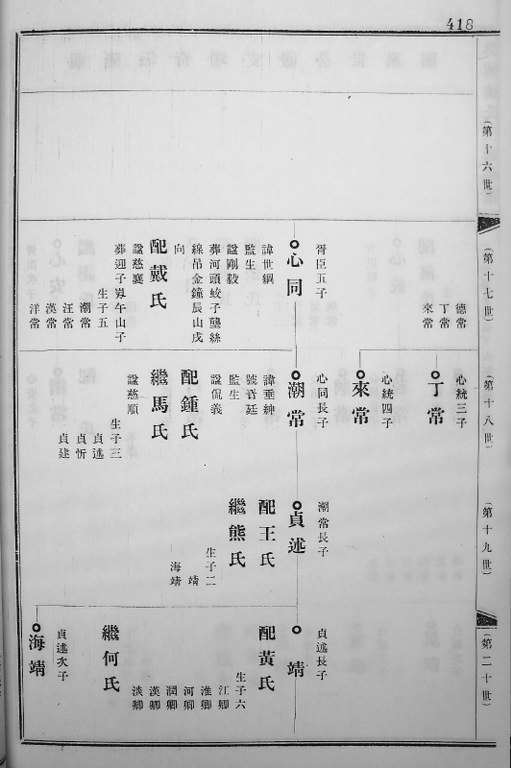 418
(第十六世)
(第十七世)
德常
丁常
來常
胥臣五子
心同
諱世綱
監生
諡剛毅
葬河頭蛟子壟絲
線吊金鐘辰山戌
向
配戴氏
諡慈襄
葬迎子㟁午山子
生子五
潮常
汪常
漢常
洋常
(第十八世)
心統三子
丁常
心統四子
來常
心同長子
潮常
諱垂紳
號晉廷
監生
諡侃義
配鍾氏
繼馬氏
諡慈順
生子三
貞述
貞忻
貞建
(第十九世)
潮常長子
貞述
配王氏
繼熊氏
生子二
靖
海靖
(第二十世)
貞述長子
靖
配黃氏
生子六
江卿
淮卿
河卿
澗卿
漢卿
淡卿
繼何氏
貞述次子
海靖